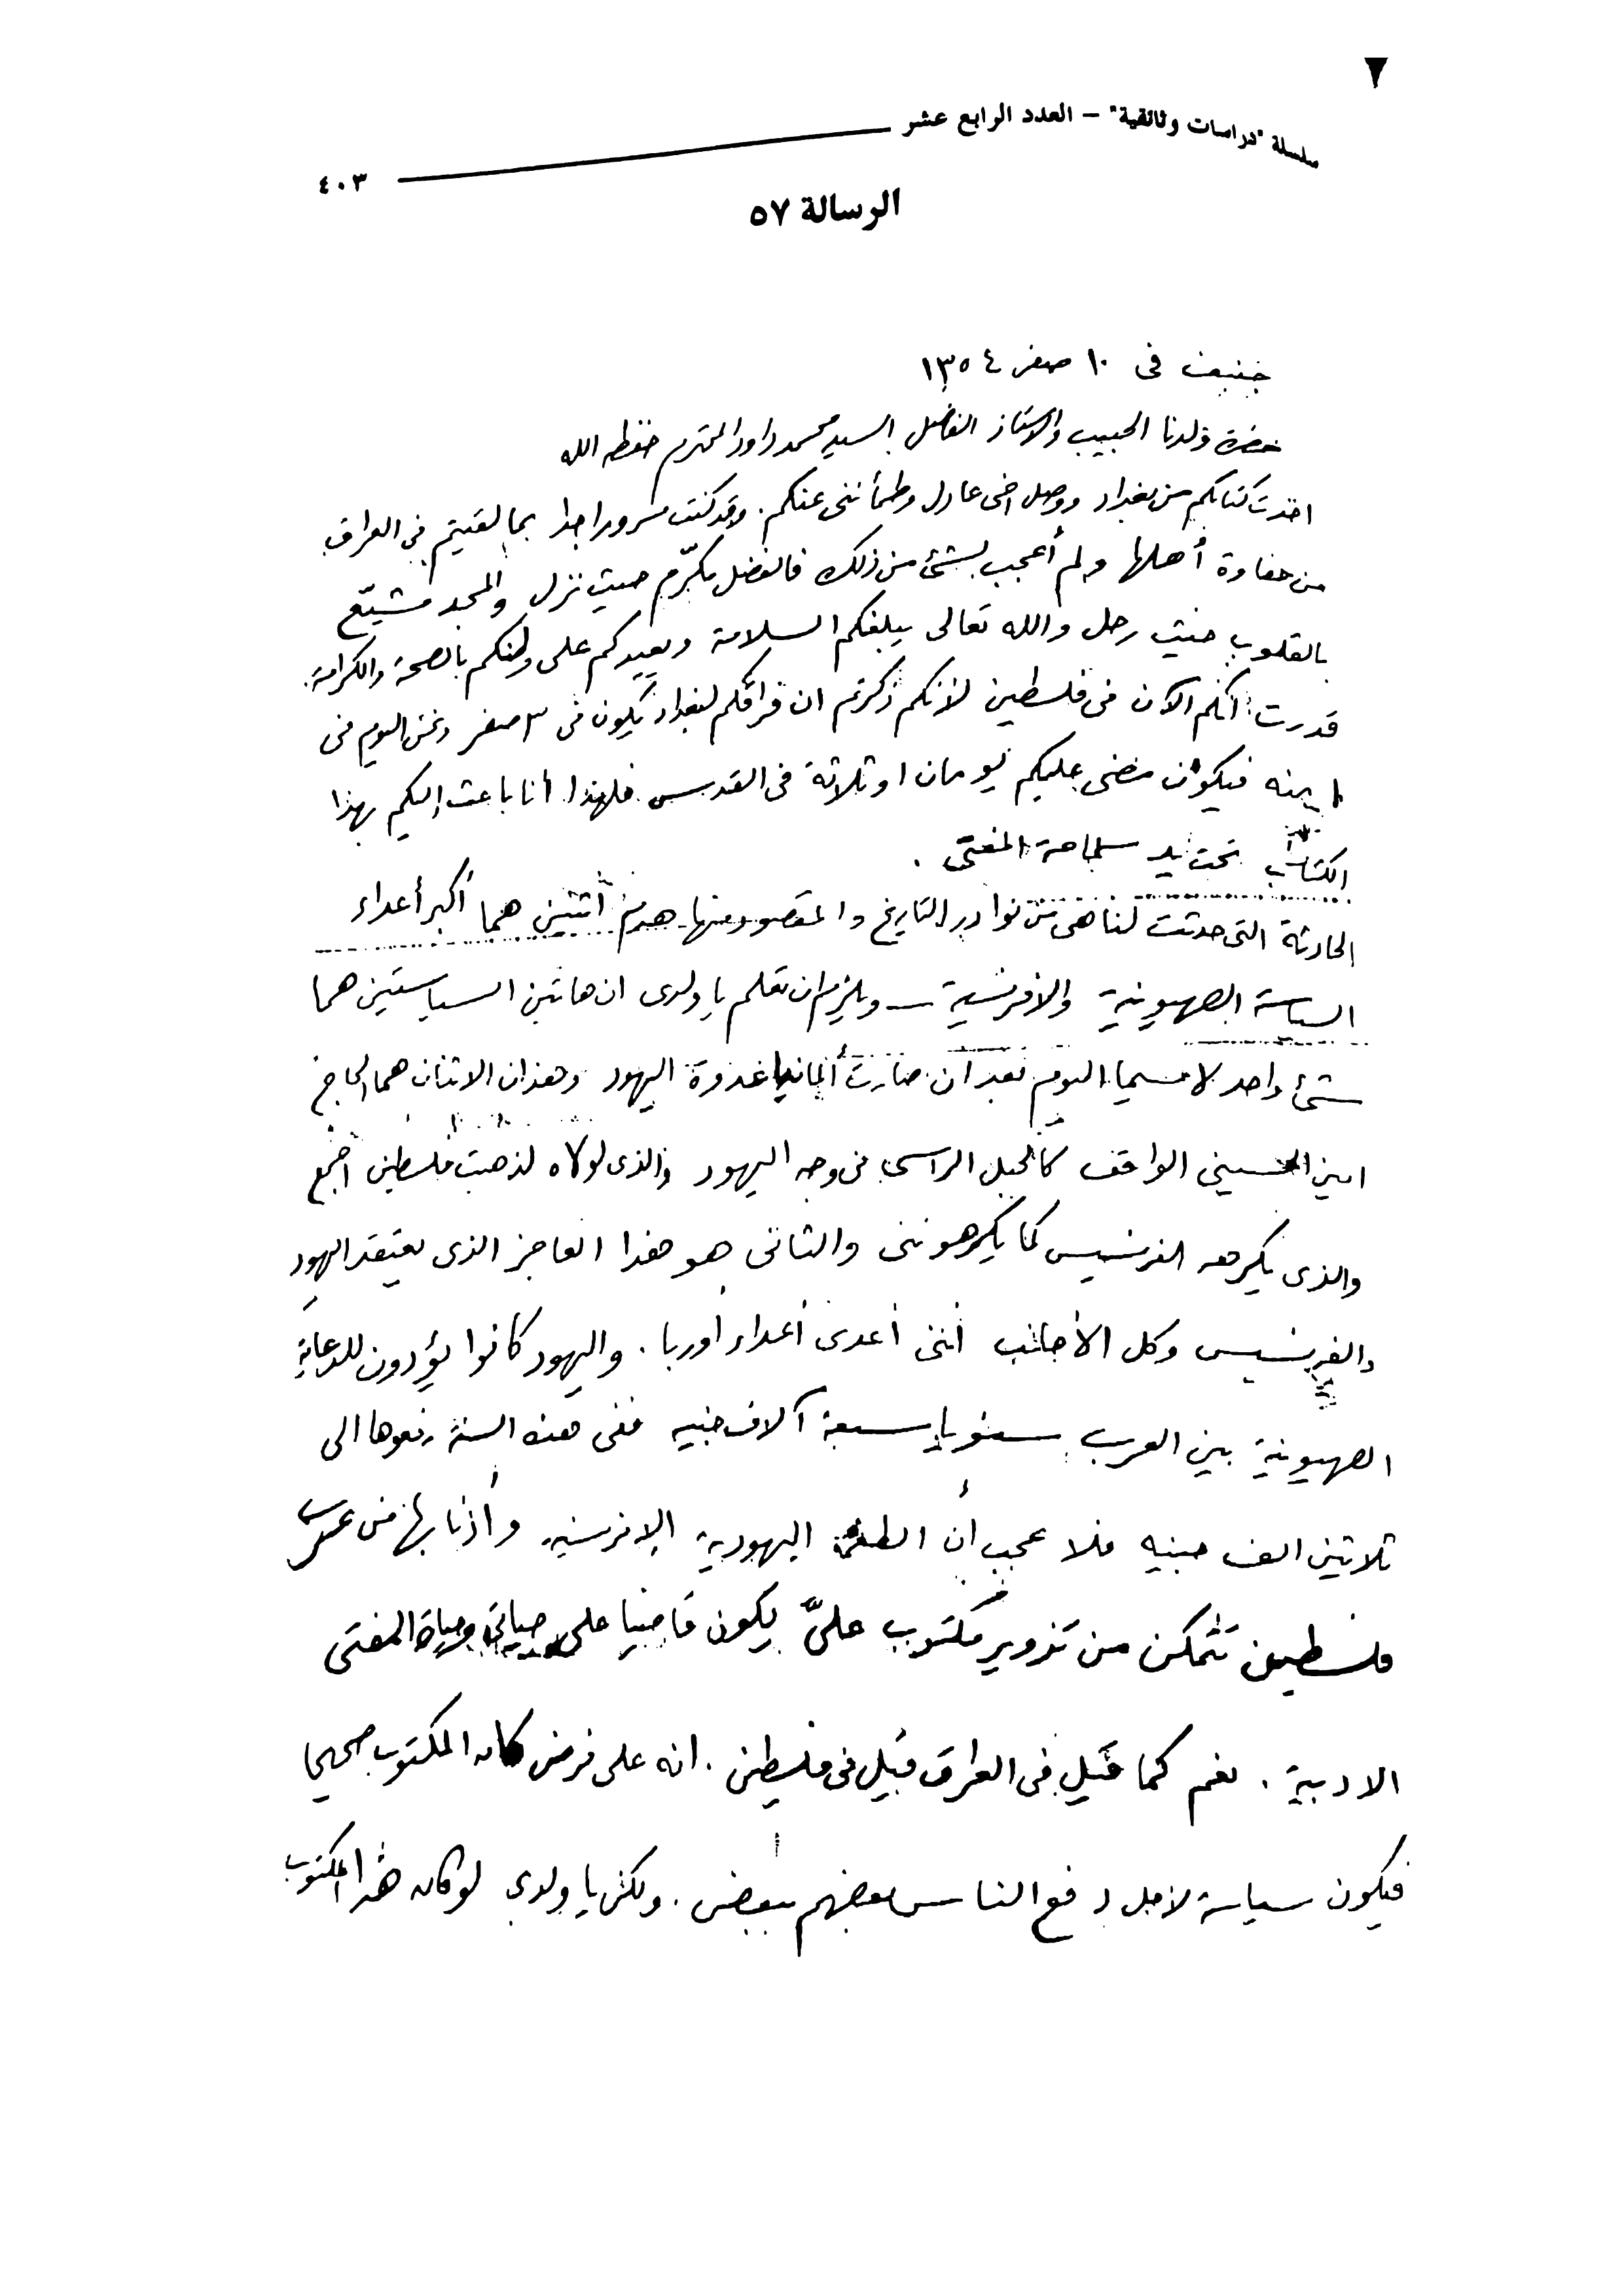 ٢
سلسلة "دراسات وثائقية" – العدد الرابع عشر
٤٠٣
الرسالة ٥٧
جنيف فى ١٠ صفر ١٣٥٤
حضرة ولدنا الحبيب والاستاذ الفاضل السيد محمد داود المحترم حفظه الله
اخذت كتابكم من بغداد ووصل اخى عادل وطمأننى عنكم. وقد كنت مسرورا جدا بما لقيتم فى العراق
من حفاوة أهلها ولم أعجب بشئ من ذلك فالفضل مكرّم حيث نزل والمجد مشيّع
بالقلوب حيث رحل والله تعالى يبلغكم السلامة ويعيدكم على وطنكم بالصحة والكرامة.
قدرت انكم الآن فى فلسطين لأنكم ذكرتم ان فراقكم لبغداد يكون فى ٣ صفر ونحن اليوم فى
١٠ منه فيكون مضى عليكم يومان او ثلاثة فى القدس فلهذا أنا باعث إليكم بهذا
الكتاب تحت يد سماحة المفتى .
الحادثة التى حدثت لنا هى من نوادر التاريخ والمقصود منها هدم اثنين هما أكبر أعداء
السياسة الصهيونية والافرنسية – ويلزم ان تعلم يا ولدى ان هاتين السياستين هما
شئ واحد لا سيما اليوم بعد ان صارت ألمانيا عدوة اليهود وهذان الاثنان هما الحاج
امين الحسينى الواقف كالجبل الراسى فى وجه اليهود والذى لولاه لذهبت فلسطين اجمع
والذى يكرهه الفرنسيس كما يكرهوننى والثانى هو هذا العاجز الذى يعتقد اليهود
والفرنسيس وكل الأجانب أننى أعدى أعداء أوربا . واليهود كانوا يؤدون للدعاية
الصهيونية بين العرب سنويا سبعة آلاف جنيه ففى هذه السنة رفعوها الى
ثلاثين الف جنيه فلا عجب أن اليهودية الافرنسية وأذنابها من عرب
فلسطين تتمكن من تزوير مكتوب علىّ يكون قاضيا على حياتى وحياة المفتى
الادبية . نعم كما قيل فى العراق قيل فى فلسطين . انه على فرض كان المكتوب صحيحا
فيكون سياسة لاجل دفع الناس بعضهم ببعض . ولكن يا ولدى لو كان هذا المكتوب